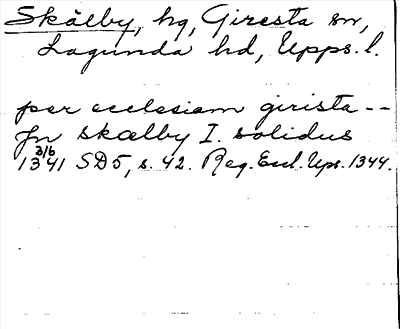 Skälby, hg, Giresta sn,
Lagunda hd, Upps. l.
per ecclesiam girista --
Jn skælby I. solidus
3/6
1341 SD5, s. 42. Reg. Eccl. Ups. 1344.